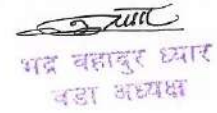 भद्र बहादुर ध्यार
वडा अध्यक्ष